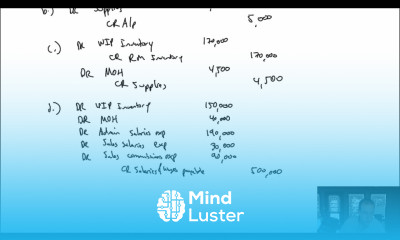 b.) DR Supplies
CR A/p 5,000
(c.) DR WIP Inventory 170,000
CR RM Inventory 170,000
DR MOH 4,500
CR Supplies 4,500
d.) DR WIP Inventory 150,000
DR MOH 40,000
DR Admin Salaries exp 190,000
DR Sales Salaries Exp 30,000
DR Sales commissions exp 90,000
CR Salaries/wages payable 500,000
Mind
Luster